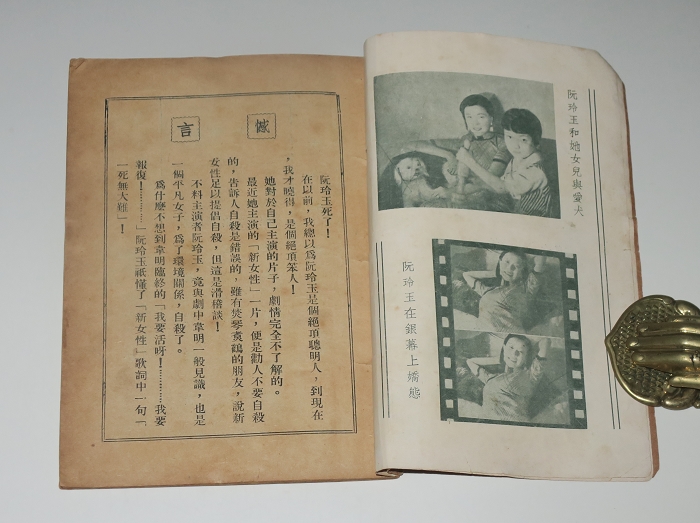 阮玲玉和她女兒與愛犬
阮玲玉在銀幕上嬌態
憾言
阮玲玉死了！
在以前，我總以爲阮玲玉是個絕頂聰明人，到現在
，我才曉得，是個絕頂笨人！
她對於自己主演的片子，劇情完全不了解的。
最近她主演的「新女性」一片，便是勸人不要自殺
的，告訴人自殺是錯誤的，雖有焚琴煑鶴的朋友，說新
女性足以提倡自殺，但這是滑稽談！
不料主演者阮玲玉，竟與劇中韋明一般見識，也是
一個平凡女子，爲了環境關係，自殺了。
爲什麼不想到韋明臨終的「我要活呀！…………我要
報復！…………」阮玲玉祇懂了「新女性」歌詞中一句「
一死無大難」！